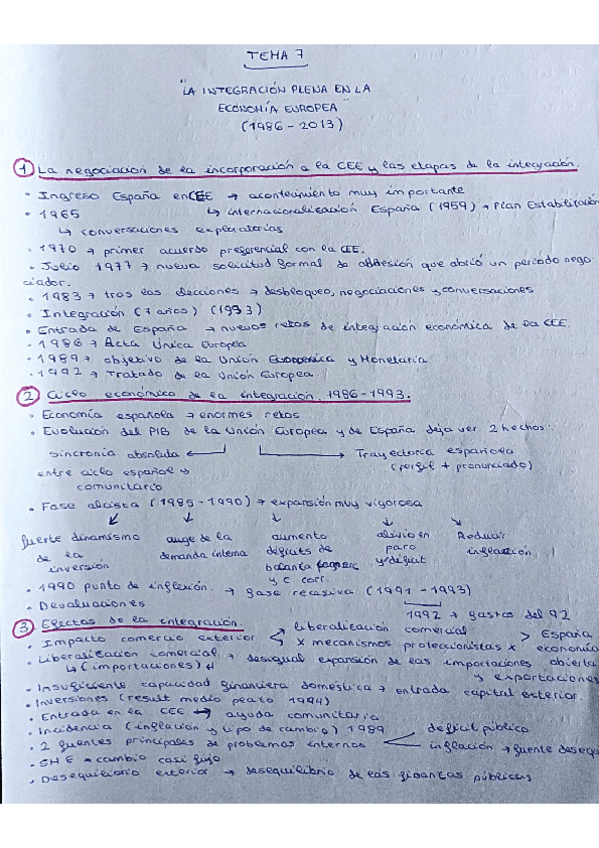 TEMA 7
"LA INTEGRACIÓN PLENA EN LA
ECONOMÍA EUROPEA"
(1986-2013)
① La negociación de la incorporación a la CEE y las etapas de la integración.
• Ingreso España en CEE → acontecimiento muy importante
• 1965 ↳ internacionalización España (1959) → Plan Estabilización
↳ conversaciones exploratorias
• 1970 → primer acuerdo preferencial con la CEE.
• Julio 1977 → nueva solicitud formal de adhesión que abrió un periodo nego-
ciador.
• 1983 → tras las elecciones → desbloqueo, negociaciones y conversaciones
• Integración (7 años) (1993)
• Entrada de España → nuevos retos de integración económica de la CEE.
• 1986 → Acta Única Europea
• 1989 → objetivo de la Unión Económica y Monetaria
• 1992 → Tratado de la Unión Europea.
② Ciclo económico de la integración. 1986-1993.
• Economía española → enormes retos
• Evolución del PIB de la Unión Europea y de España deja ver 2 hechos:
sincronía absoluta ← → Trayectoria española
entre ciclo español y (perfil + pronunciado)
comunitario
• Fase alcista (1985-1990) → expansión muy vigorosa
fuerte dinamismo auge de la aumento alivio en Reducir
de la demanda interna déficits de paro inflación
inversión balanza y déficit
y c. corr.
• 1990 punto de inflexión. → fase recesiva (1991-1993)
• Devaluaciones 1992 → gastos del 92
③ Efectos de la integración
• Impacto comercio exterior < liberalización comercial > España
x mecanismos proteccionistas x economía
• Liberalización comercial → desigual expansión de las importaciones abierta
↳ (importaciones) y exportaciones
• Insuficiente capacidad financiera doméstica → entrada capital exterior.
• Inversiones (result medio plazo 1994)
• Entrada en la CEE → ayuda comunitaria
• Incidencia (inflación y tipo de cambio) 1989
• 2 fuentes principales de problemas internos < déficit público
inflación → fuente
• SME → cambio casi fijo
• Desequilibrio exterior → desequilibrio de las finanzas públicas